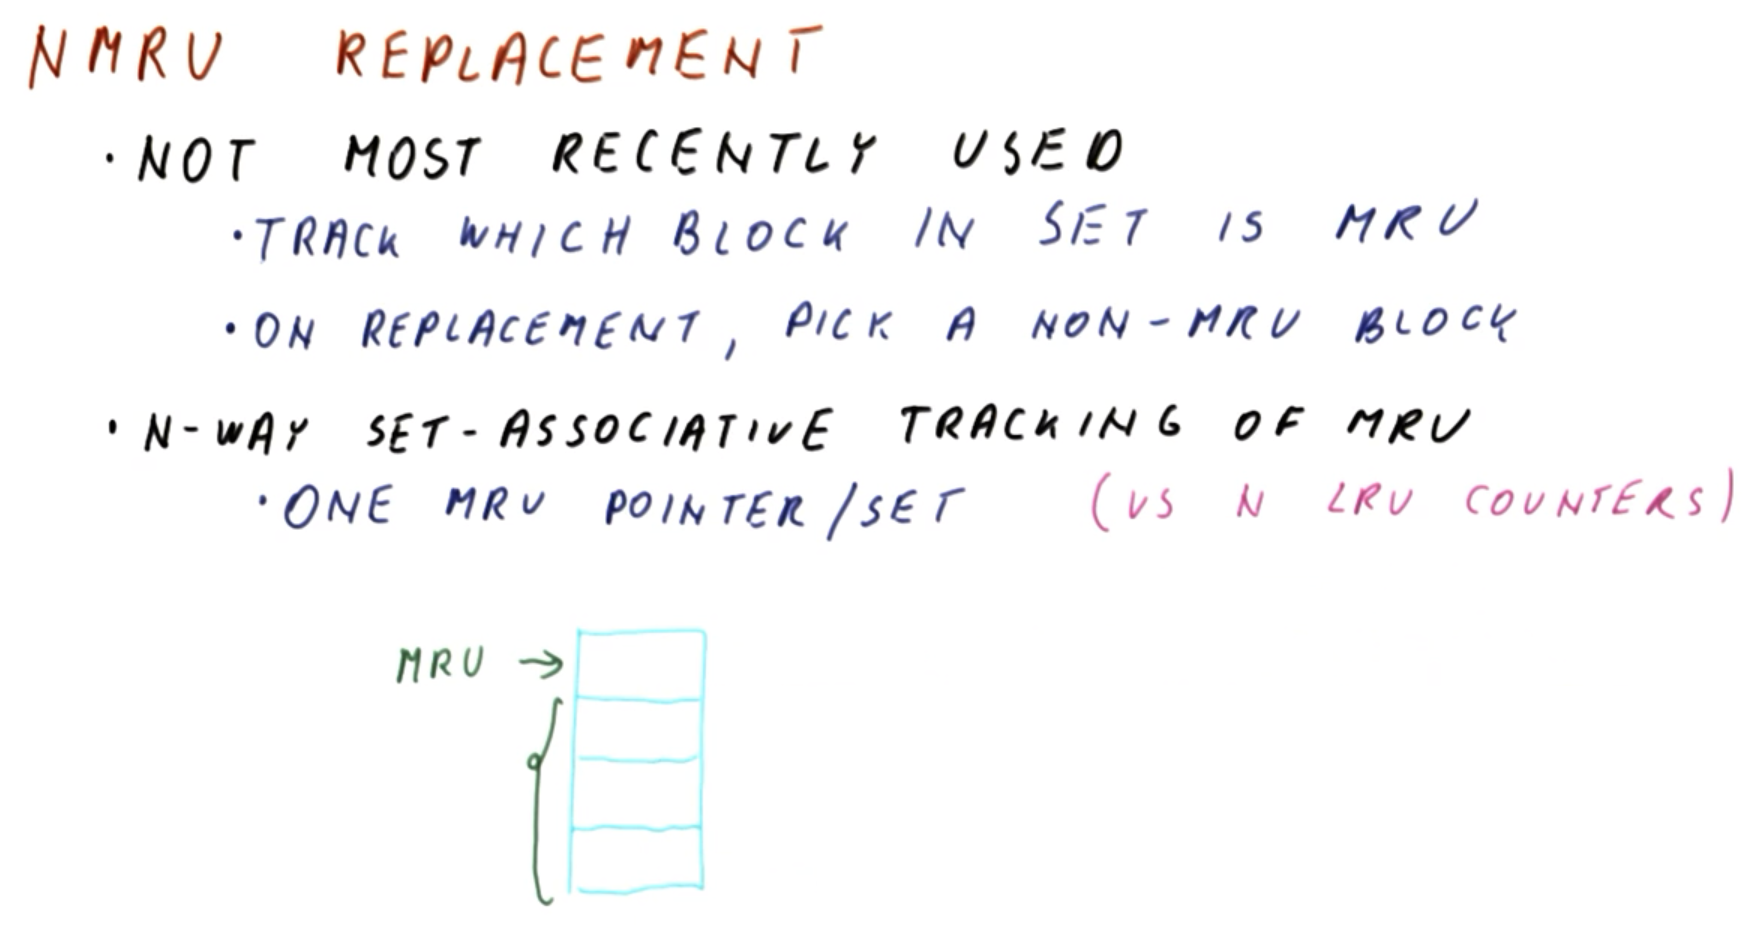 NMRU REPLACEMENT
• NOT MOST RECENTLY USED
• TRACK WHICH BLOCK IN SET IS MRU
• ON REPLACEMENT, PICK A NON-MRU BLOCK
• N-WAY SET-ASSOCIATIVE TRACKING OF MRU
• ONE MRU POINTER/SET (VS N LRU COUNTERS)
MRU →